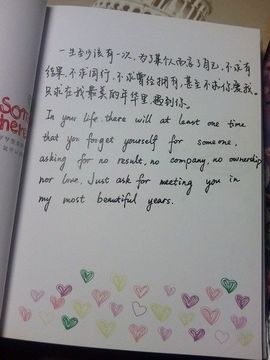 一生至少该有一次，为了某个人而忘了自己，不求有
结果，不求同行，不求曾经拥有，甚至不求你爱我。
只求在我最美的年华里，遇到你。
In your life, there will at least one time
that you forget yourself for someone,
asking for no result, no company, no ownership
nor love. Just ask for meeting you in
my most beautiful years.